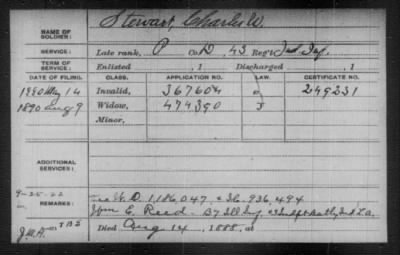 NAME OF SOLDIER: Stewart, Charles W.
SERVICE: Late rank, P Co. D, 43 Reg't Ind. Inf.
TERM OF SERVICE: Enlisted , 1 Discharged , 1
DATE OF FILING. CLASS. APPLICATION NO. LAW. CERTIFICATE NO.
1880 May 14 Invalid, 367604 249231
1890 Aug 9 Widow, 474390
Minor,
ADDITIONAL SERVICES:
9-25-22
REMARKS: W.O. 1,186,047, 936,494
E. Reed - B 7 Ill Inf.
Died Aug 14, 1888, at